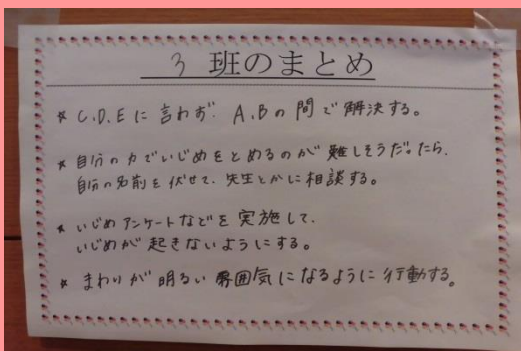 3 班のまとめ
* C.D.Eに言わず A.Bの間で解決する。
* 自分の力でいじめをとめるのが難しそうだったら、
自分の名前を伏せて、先生とかに相談する。
* いじめアンケートなどを実施して、
いじめが起きないようにする。
* まわりが明るい雰囲気になるように行動する。